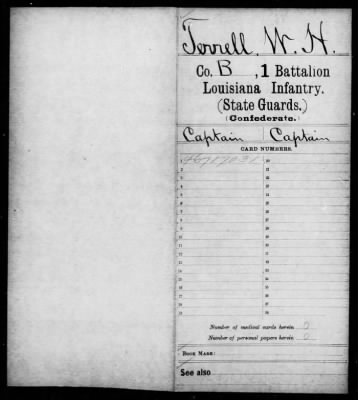 Terrell, W. H.
Co. B, 1 Battalion
Louisiana Infantry.
(State Guards.)
(Confederate.)
Captain Captain
CARD NUMBERS.
1 20
2 21
3 22
4 23
5 24
6 25
7 26
8 27
9 28
10 29
11 30
12 31
13 32
14 33
15 34
16 35
17 36
18 37
19 38
Number of medical cards herein 0
Number of personal papers herein 0
BOOK MARK:
See also